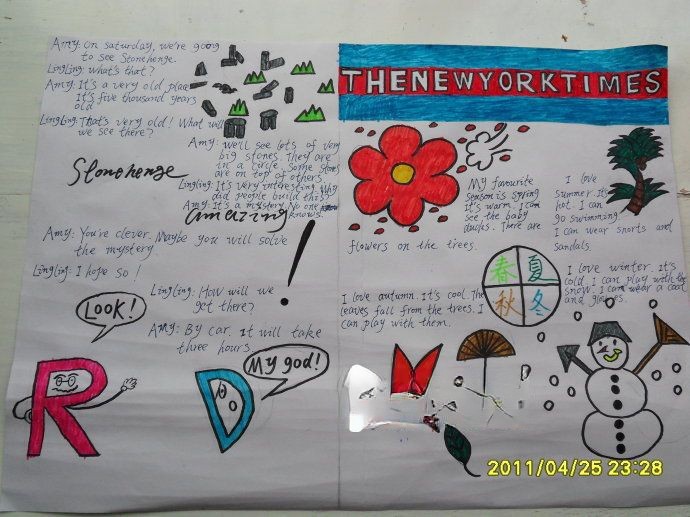 Amy: On saturday, we're going
to see Stonehenge.
Lingling: What's that?
Amy: It's a very old place
It's five thousand years
old
Lingling: That's very old! What will
we see there?
Amy: we'll see lots of very
big stones. They are
in a circle. Some stones
are on top of others
Lingling: It's very interesting. Why
did people build this?
Amy: It's a mystery. No one
knows.
Stonehenge
amazing
!
Amy: You're clever. Maybe you will solve
the mystery
Lingling: I hope so!
Lingling: How will we
get there?
Amy: By car. It will take
three hours
LOOK!
My god!
R
D
THENEWYORKTIMES
My favourite
season is spring
It's warm. I can
see the baby
ducks. There are
flowers on the trees.
I love
summer. It's
hot. I can
go swimming.
I can wear snorts and
sandals.
春 夏
秋 冬
I love autumn. It's cool. The
leaves fall from the trees. I
can play with them.
I love winter. It's
cold. I can play with the
snow. I can wear a coat
and gloves.
2011/04/25 23:28